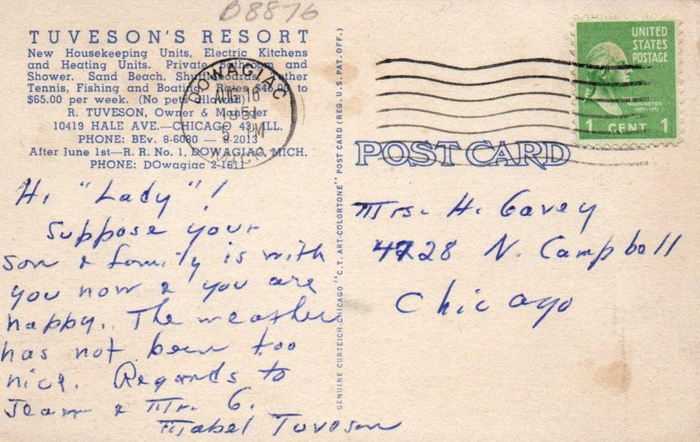 B8876
TUVESON'S RESORT
New Housekeeping Units, Electric Kitchens
and Heating Units. Private Bathroom and
Shower. Sand Beach, Shuffleboards, other
Tennis, Fishing and Boating. Rates $45.00 to
$65.00 per week. (No pets allowed)
R. TUVESON, Owner & Manager
10419 HALE AVE.—CHICAGO 43, ILL.
PHONE: BEv. 8-6080 — 8-2013
After June 1st—R. R. No. 1, DOWAGIAC, MICH.
PHONE: DOwagiac 2-1611
DOWAGIAC
AUG 16
1951
PM
UNITED
STATES
POSTAGE
WASHINGTON
1 CENT 1
POST CARD
GENUINE CURTEICH-CHICAGO "C.T. ART-COLORTONE" POST CARD (REG. U.S. PAT. OFF.)
Hi "Lady"!
Suppose your
son & family is with
you now & you are
happy. The weather
has not been too
nice. Regards to
Jean & Mr. G.
Mabel Tuveson
Mrs. H. Gavey
4728 N. Campbell
Chicago